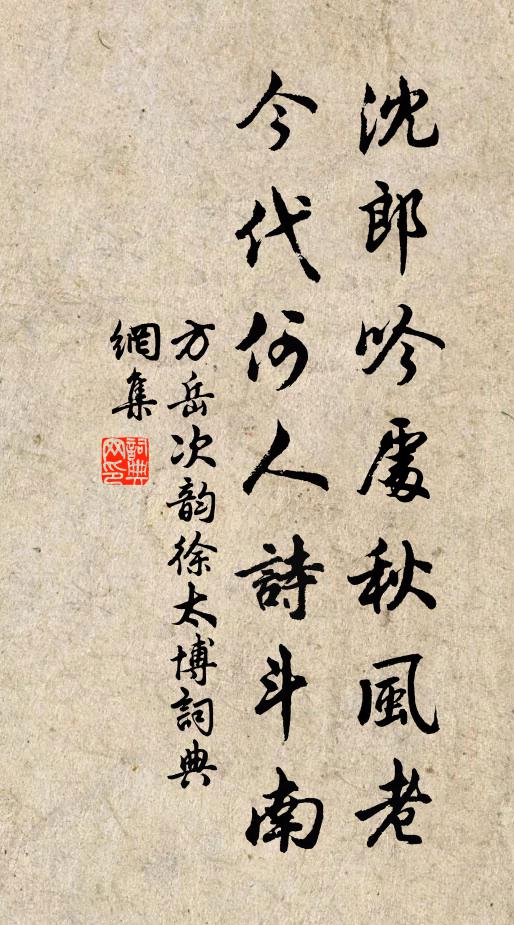 沈郎吟處秋風老
今代何人詩斗南
方岳次韵徐太博詞典
網集
詞典
网印